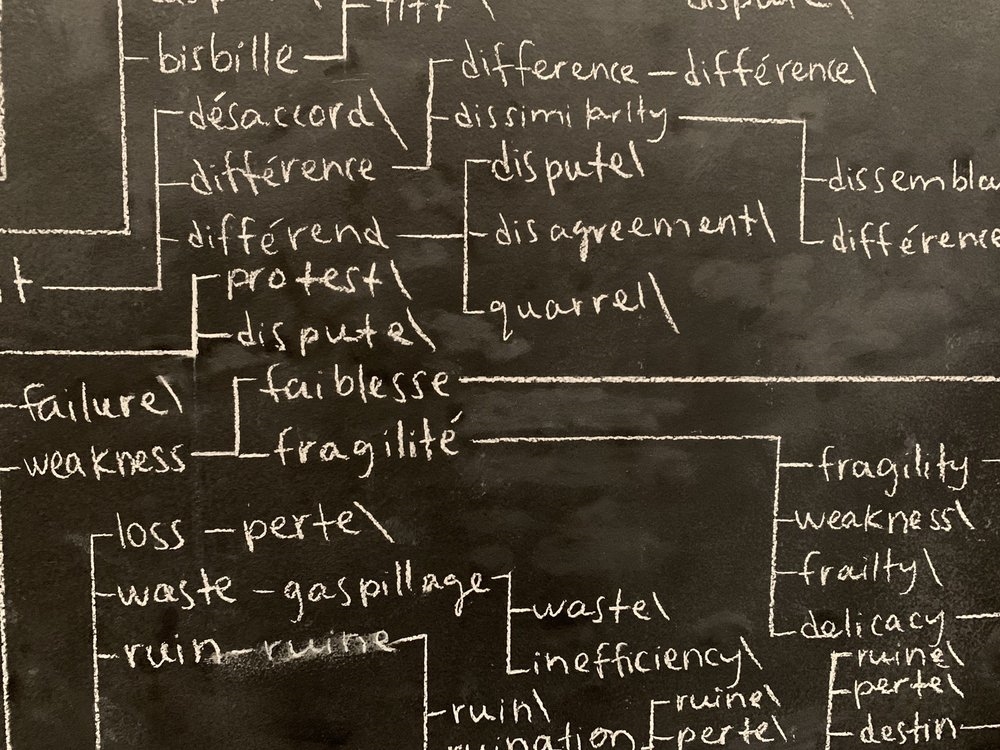 bisbille
difference – différence\
désaccord\
dissimilarity
différence
dispute\
différend
disagreement\
différence
protest\
quarrel\
dispute\
faiblesse
failure\
fragilité
weakness
fragility
loss – perte\
weakness\
waste – gaspillage
frailty\
waste\
delicacy
ruin – ruine
inefficiency\
ruine\
perte\
ruin\
ruine\
destin
ruination
perte\